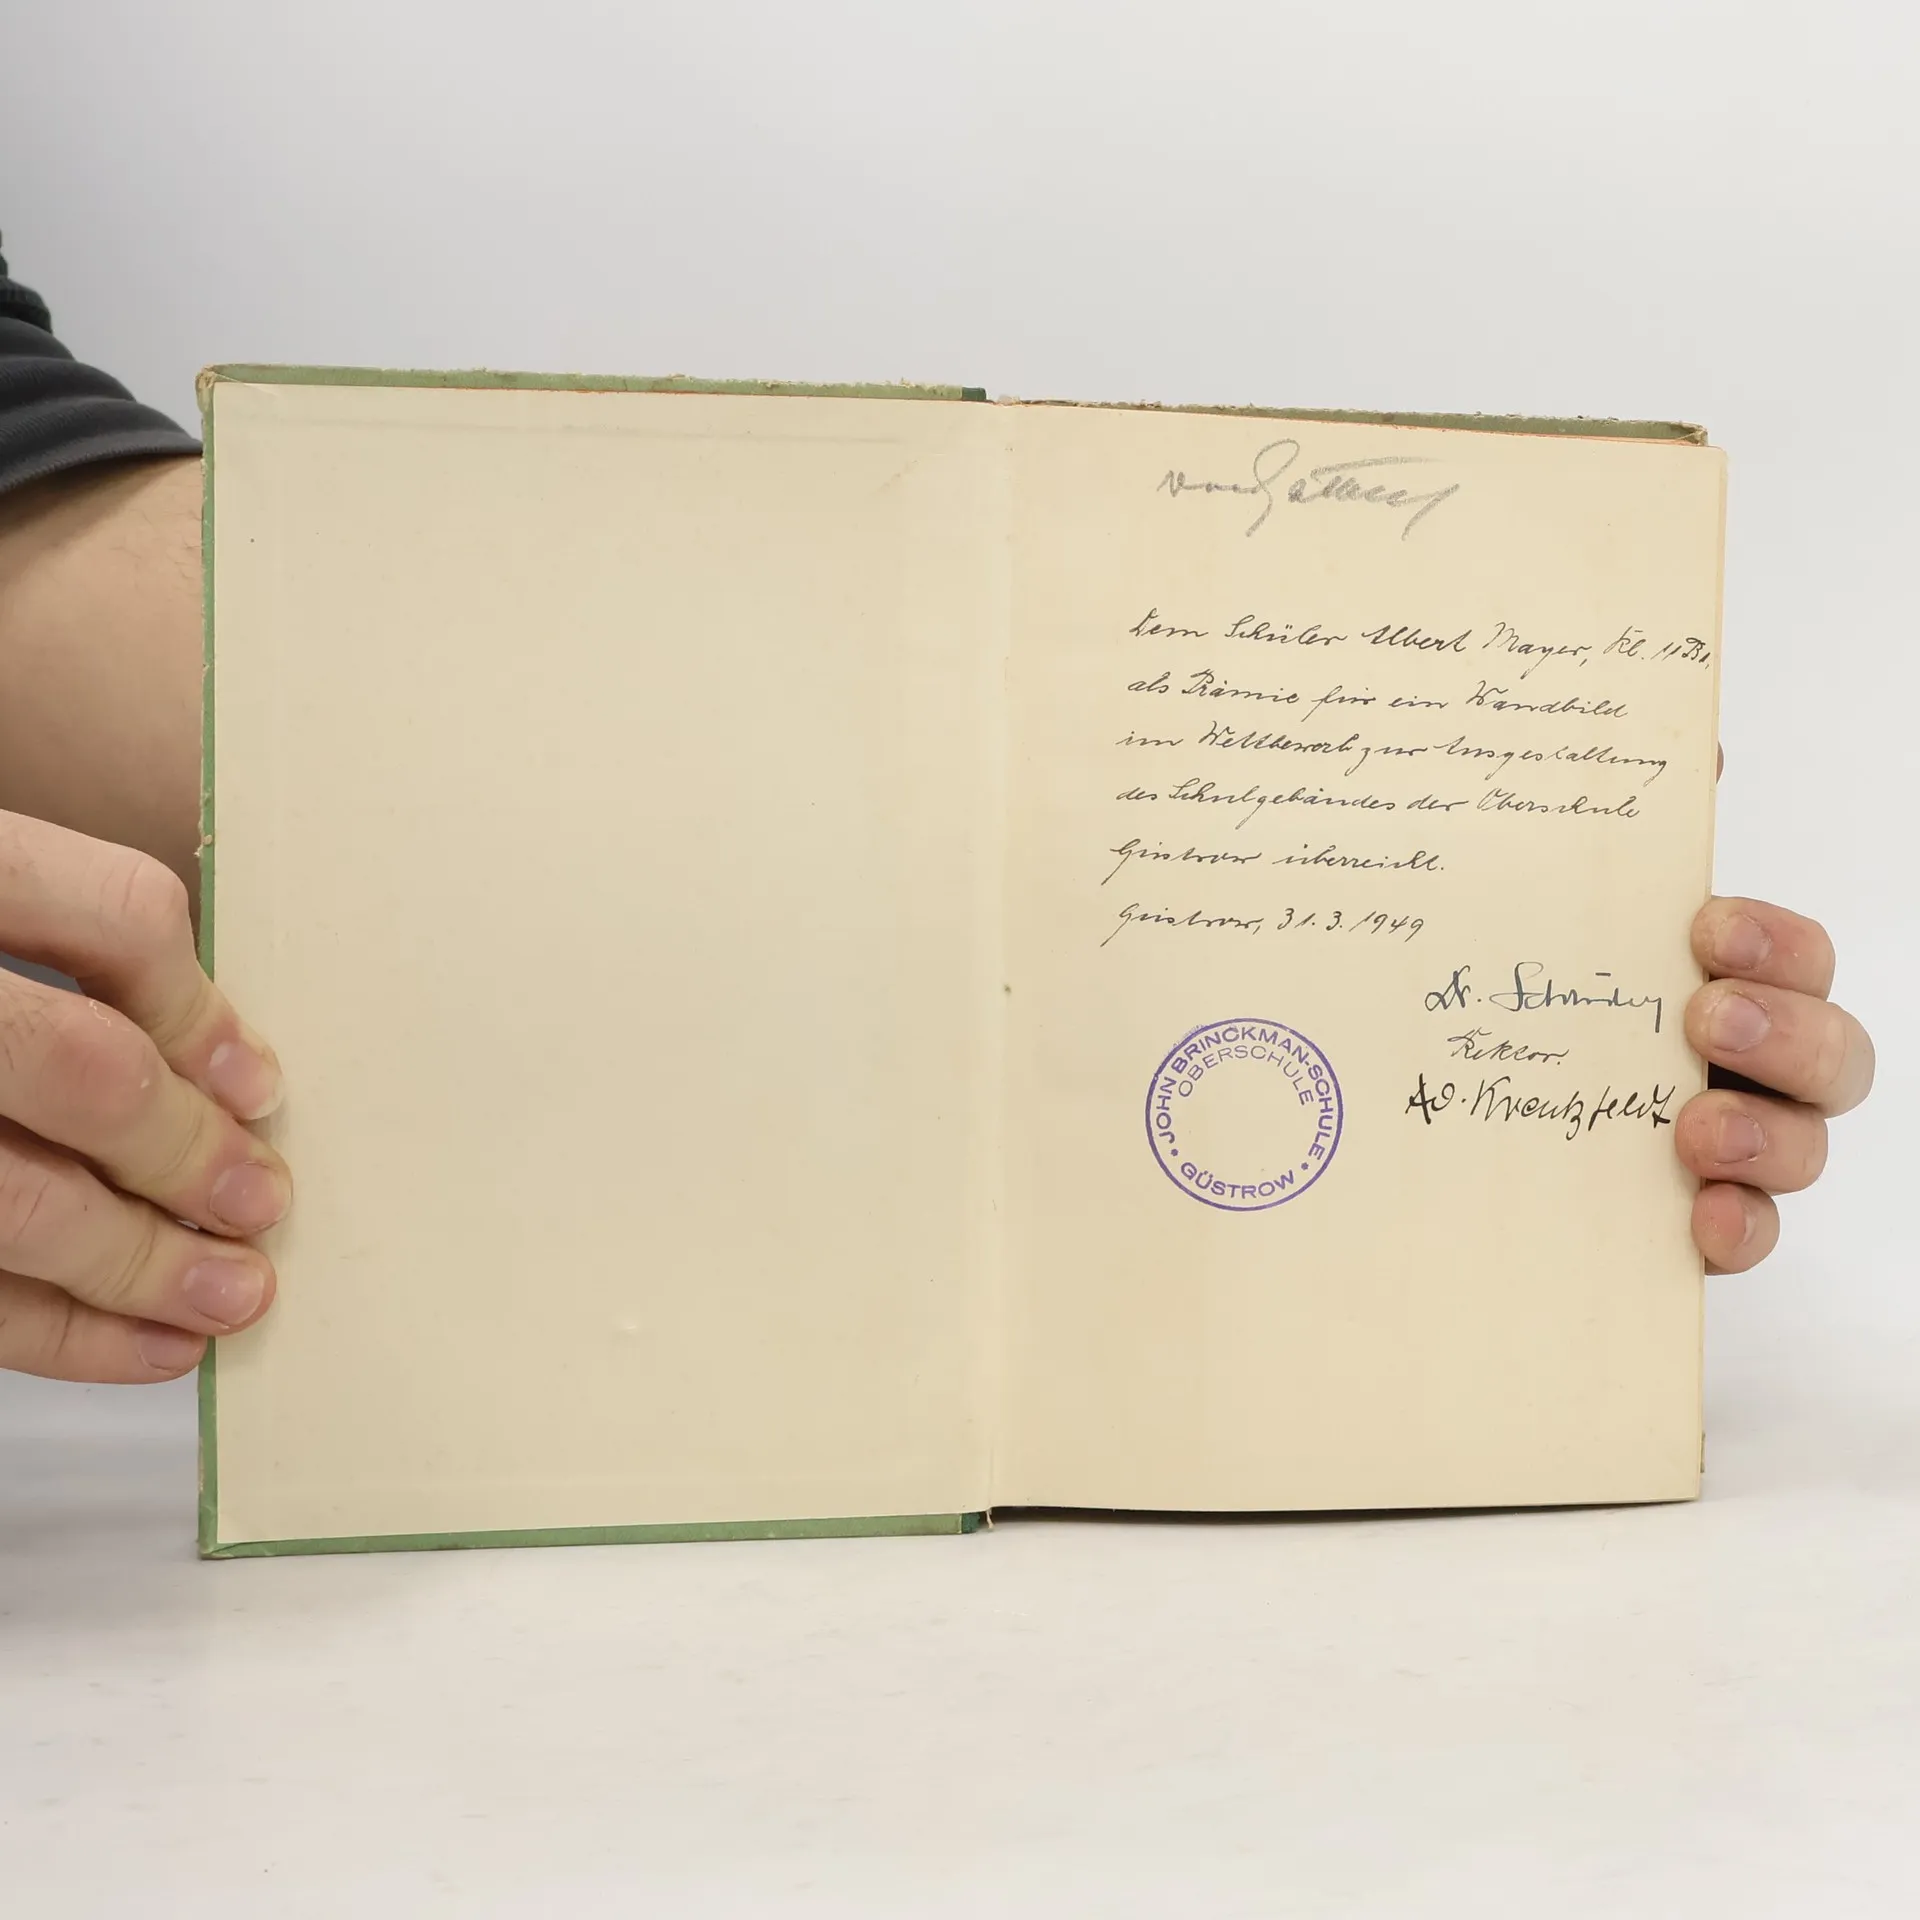 Dem Schüler Albert Mayer, Kl. 11 B1,
als Prämie für ein Wandbild
im Wettbewerb zur Ausgestaltung
des Schulgebäudes der Oberschule
Güstrow überreicht.
Güstrow, 31.3.1949
Dr.
Rektor.
Ad. Kreutzfeldt
JOHN BRINCKMAN-SCHULE
OBERSCHULE
• GÜSTROW •